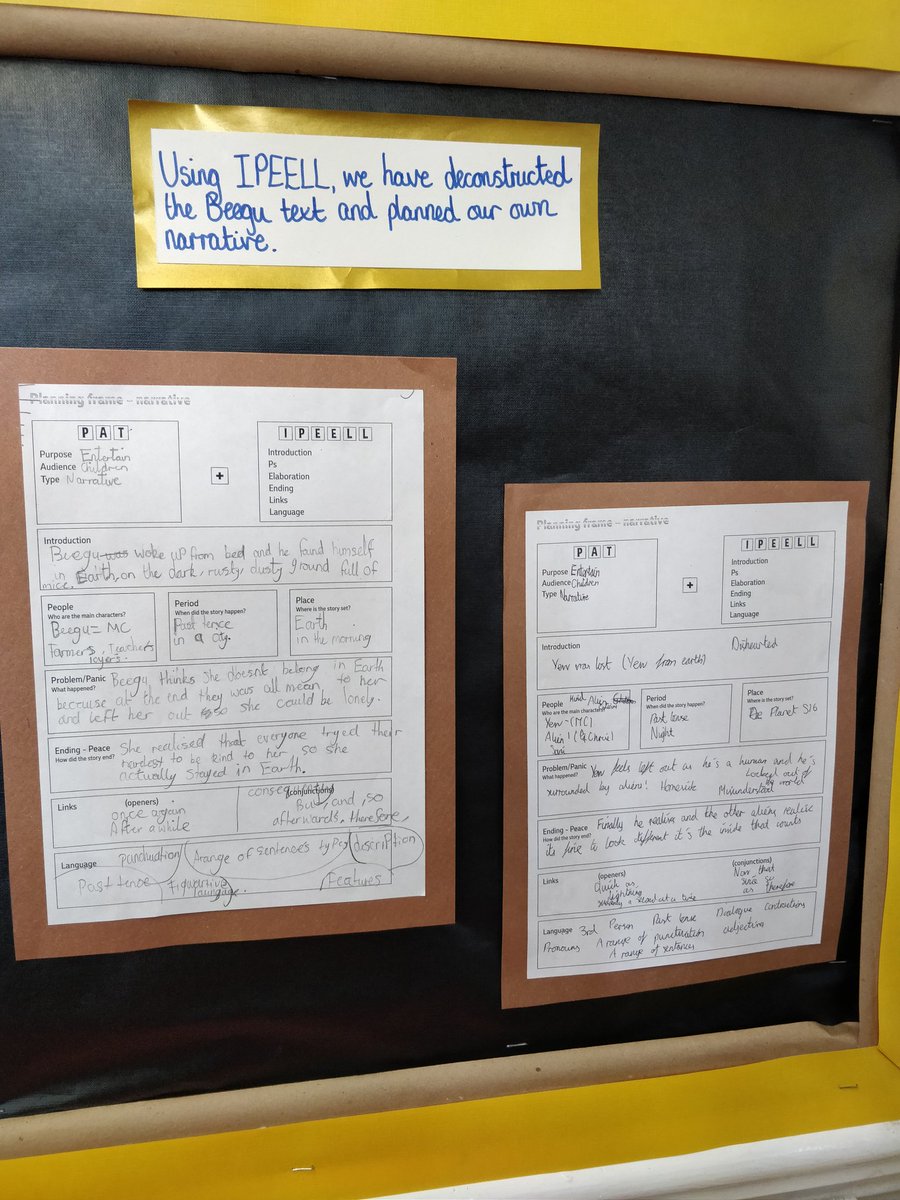 Using IPEELL, we have deconstructed
the Beegu text and planned our own
narrative.
Planning frame – narrative
P A T
Purpose Entertain
Audience Children
Type Narrative
+
I P E E L L
Introduction
Ps
Elaboration
Ending
Links
Language
Introduction
Beegu was woke up from bed and he found himself
in Earth, on the dark, rusty, dusty ground full of
mice.
People
Who are the main characters?
Beegu = MC
Farmers, Teachers
Period
When did the story happen?
Past tence
in a city.
Place
Where is the story set?
Earth
in the morning
Problem/Panic
What happened?
Beegu thinks she doesnt belong in Earth
because at the end they was all mean to her
and left her out so she could be lonely.
Ending - Peace
How did the story end?
She realised that everyone tryed their
hardest to be kind to her, so she
actually stayed in Earth.
Links
(openers)
once again
After a while
(conjunctions)
But, and, so
afterwards, therefore,
Language
punctuation
A range of sentences types
description
Past tence
Figurative
language
Features
Planning frame – narrative
P A T
Purpose Entertain
Audience Children
Type Narrative
+
I P E E L L
Introduction
Ps
Elaboration
Ending
Links
Language
Introduction
Disheartened
Yew was lost (Yew from earth)
People
Who are the main characters?
Yew - (MC)
Alien 1
Period
When did the story happen?
Past tense
Night
Place
Where is the story set?
Planet S16
Problem/Panic
What happened?
Yew feels left out as he's a human and he's
surrounded by aliens! Homesick Misunderstood
Locked out of
the world
Ending - Peace
How did the story end?
Finally he realise and the other aliens realise
its fine to look different it's the inside that counts
Links
(openers)
Quick as
lightning
(conjunctions)
Now that
since so
as Therefore
Language 3rd Person Past tense Dialogue contractions
Pronouns A range of punctuation adjectives
A range of sentences